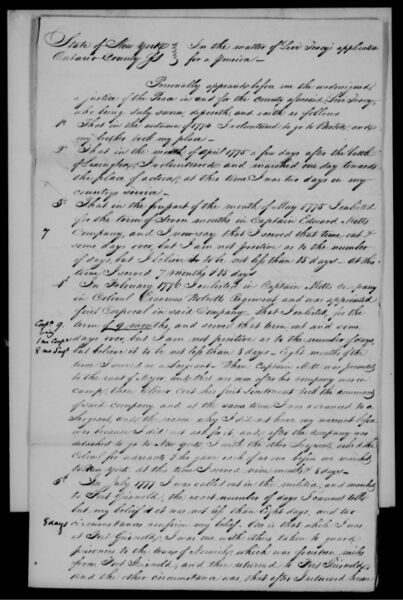 State of New York } In the matter of Levi Tracy's application
Ontario County Ss } for a Pension —
Personally appeared before me the undersigned
a justice of the Peace in and for the County aforesaid Levi Tracy,
who being duly sworn, deposeth, and saith as follows
1st That in the autumn of 1774 I volunteered to go to Boston, and
my brother took my place —
2d That in the month of April 1775 a few days after the battle
of Lexington, I volunteered and marched one day towards
the place of action, at this time I was two days in my
country's service —
3d That in the forepart of the month of May 1775 I enlisted
for the term of Seven months in Captain Edward Motts
7 Company, and I now say that I served that time out &
some days over, but I am not positive as to the number
of days, but I believe to be not less than 15 days — At this
time I served 7 months & 15 days
4th In February 1776 I enlisted in Captain Motts Company
in Colonel Regiment and was appointed
first Corporal in said Company. That I enlisted for the
term of 9 months, and served that term out and some
days over, but I am not positive as to the number of days,
but believe it to be not less than 8 days — Eight months of the
time I served as a Sergeant — When Captain Mott was promoted
to the rank of Major, and this was soon after the company was in
camp, then his first Lieutenant took the command
of said Company and at the same time I was advanced to a
Sergeant, and the reason why I did not have my warrant
was because I did not ask for it, and after the company was
detached to go to New York, I with the other Sergeants asked the
Colonel for warrants & he gave each of us one before we marched
to New York, at this time I served nine months & 8 days —
5th In July 1777 I was called out in the militia, and marched
to Fort Griswold, the exact number of days I cannot tell
but my belief is it was not less than Eight days, and two
8 days circumstances confirm my belief. One is that while I was
at Fort Griswold, I was one with others taken to guard
prisoners to the town of Norwich, which was fourteen miles
from Fort Griswold, and then returned to Fort Griswold,
and the other circumstance was that after I returned home